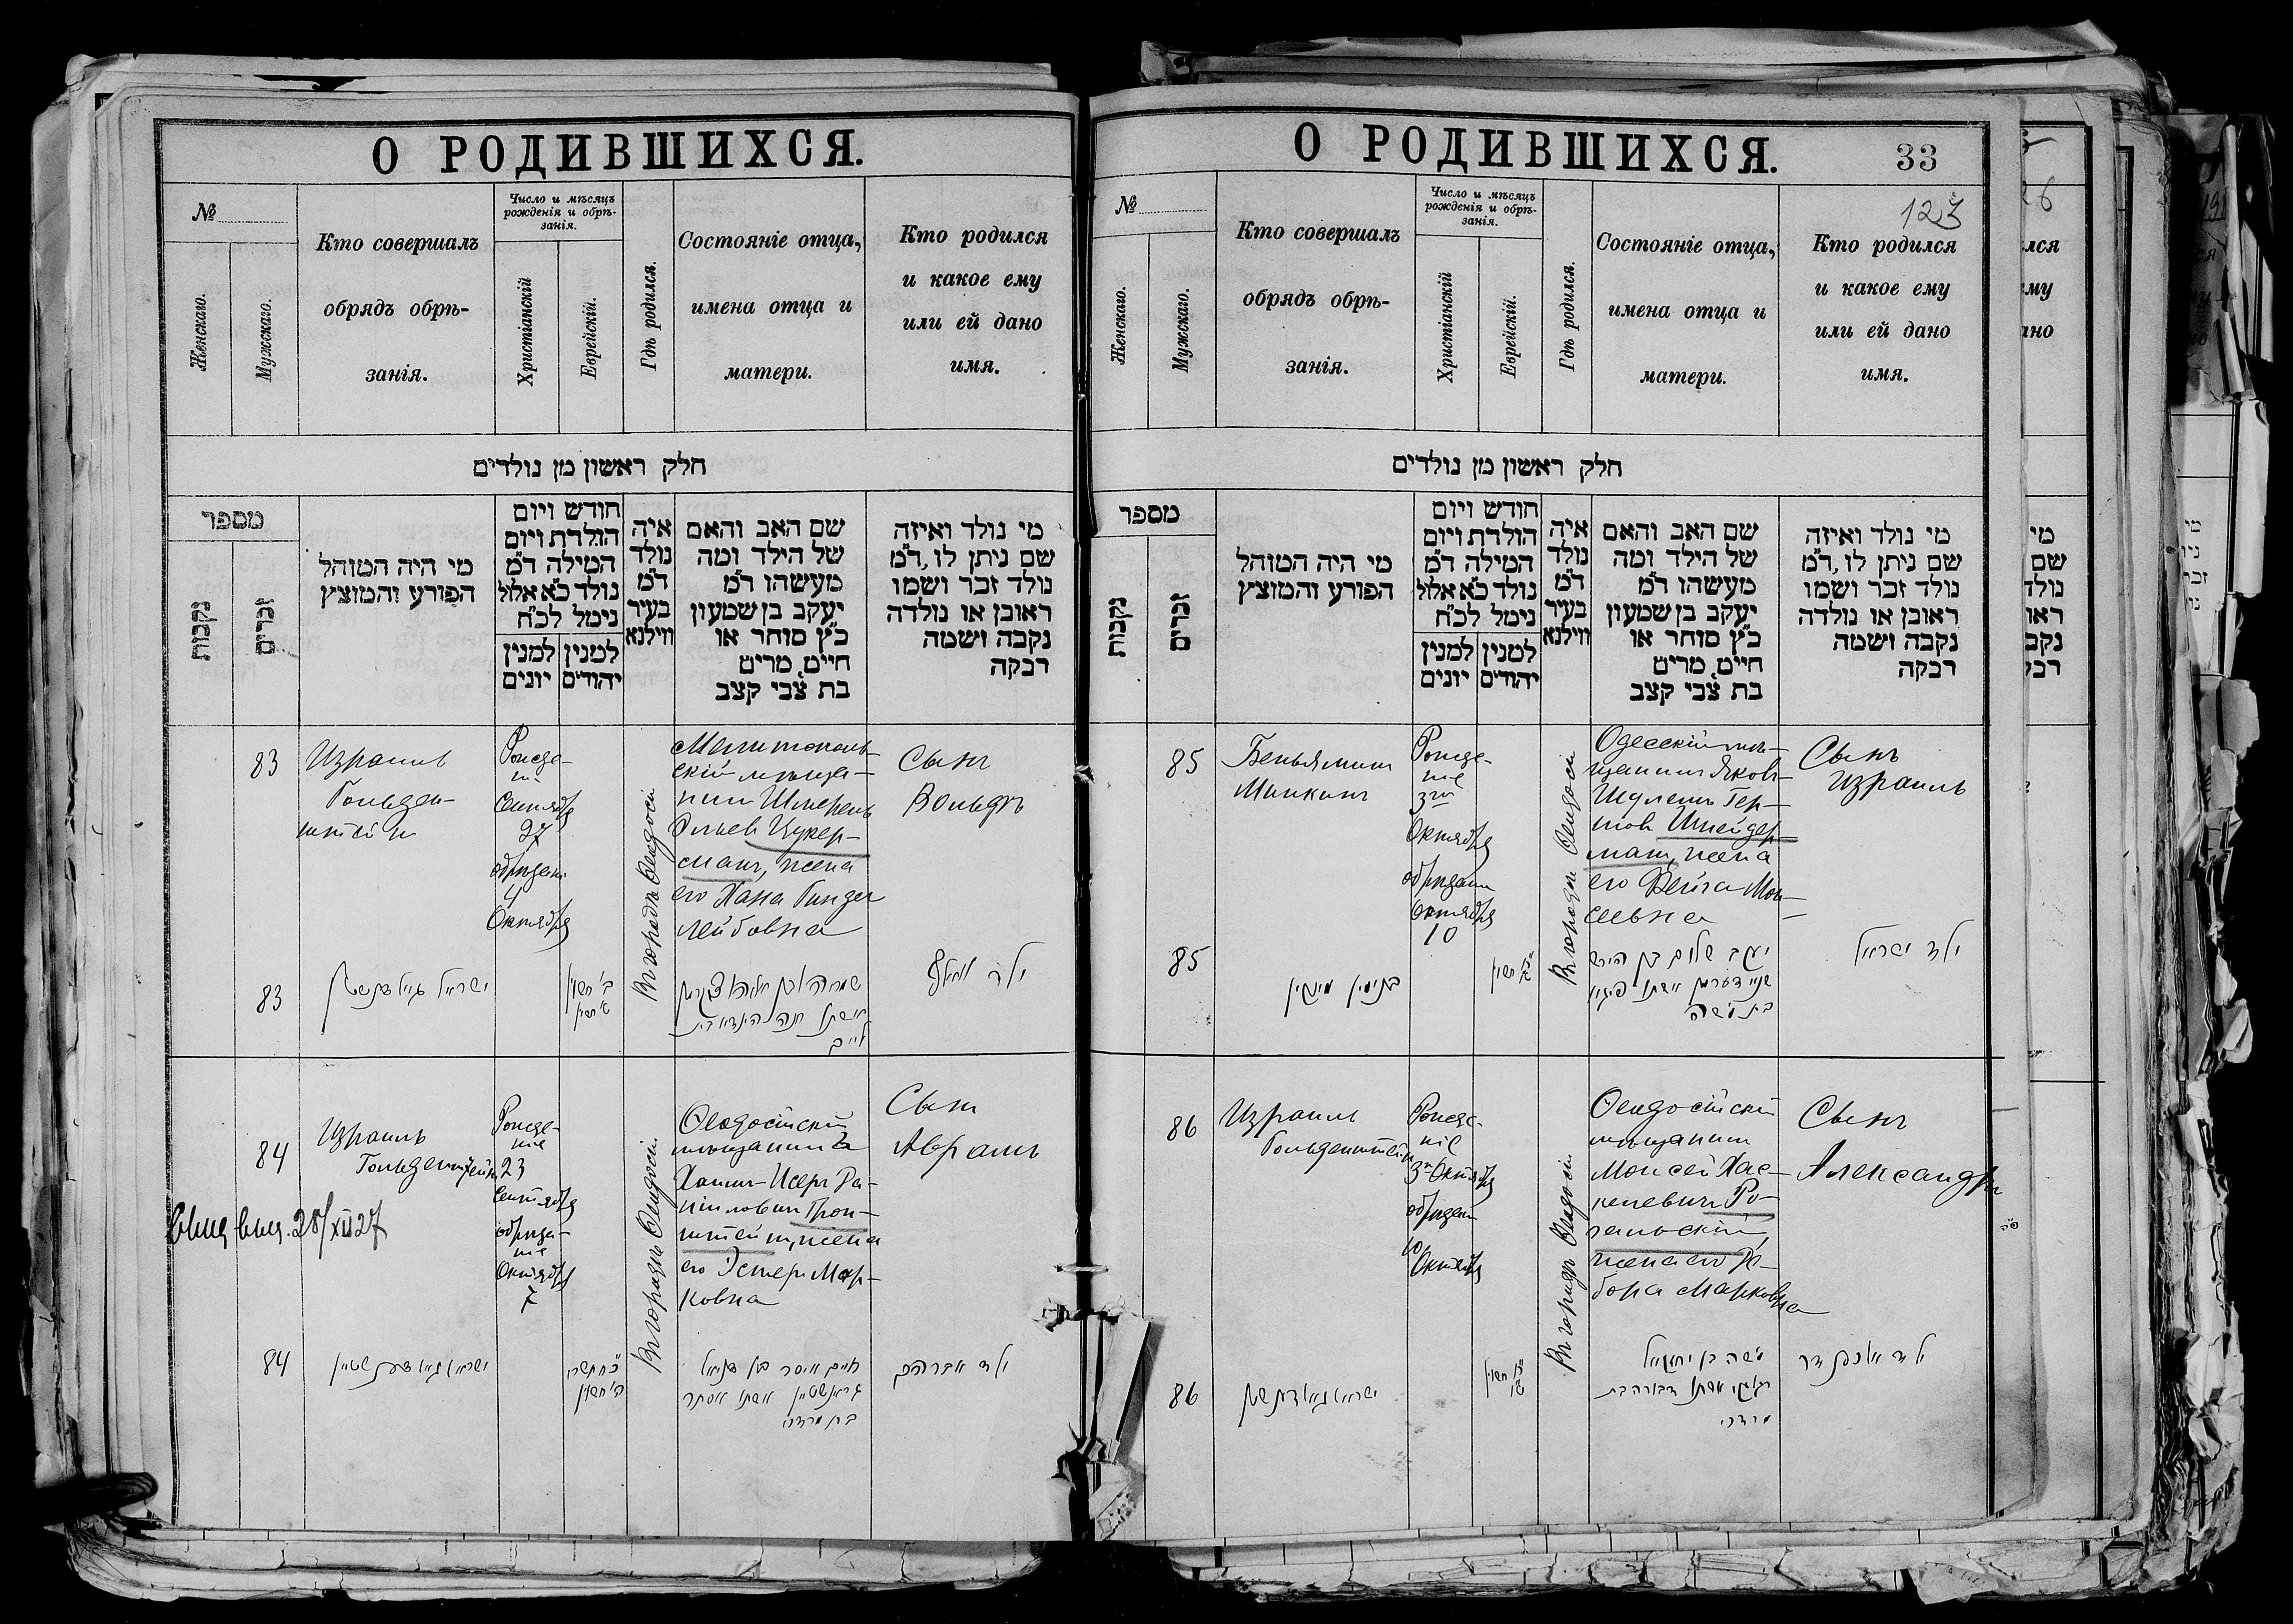 О РОДИВШИХСЯ.
№
Женскаго.
Мужскаго.
Кто совершалъ
обрядъ обрѣ-
занія.
Число и мѣсяцъ
рожденія и обрѣ-
занія.
Христіанскій
Еврейскій.
Гдѣ родился.
Состояніе отца,
имена отца и
матери.
Кто родился
и какое ему
или ей дано
имя.
חלק ראשון מן נולדים
מספר
נקבות
זכרים
מי היה המוהל
הפורע והמוצץ
חודש ויום
הולדת ויום
המילה ד״מ
נולד כ״א אלול
נימל לכ״ח
למנין
יונים
למנין
יהודים
איה
נולד
ד״מ
בעיר
ווילנא
שם האב והאם
של הילד ומה
מעשהו ד״מ
יעקב בן שמעון
כ״ץ סוחר או
חיים, מרים
בת צבי קצב
מי נולד ואיזה
שם ניתן לו, ד״מ
נולד זכר ושמו
ראובן או נולדה
נקבה ושמה
רבקה
83
Израиль
Гольден-
штейн
Рожде-
ніе
Сентября
27
обрѣзаніе
4
Октября
Въ городѣ Ѳеодосіи
Мелитополь-
скій мѣща-
нинъ Шмерель
Цукер-
манъ, жена
его Хана Гинда
Лейбовна
Сынъ
Вольфъ
83
ישראל גאלדענשטיין
84
Израиль
Гольденштейнъ
28/XII 27
Рожде-
ніе
23
Сентября
обрѣза-
ніе
Октября
7
Въ городѣ Ѳеодосіи
Ѳеодосійскій
мѣщанинъ
Хаимъ-Исеръ Да-
ніиловичъ Грон-
штейнъ, жена
его Эстеръ Мар-
ковна
Сынъ
Авраамъ
84
ישראל גאלדענשטיין
חיים איסר בן דניאל
גראנשטיין אשתו אסתר
בת מרדכי
ילד אברהם
О РОДИВШИХСЯ.
33
123
№
Женскаго.
Мужскаго.
Кто совершалъ
обрядъ обрѣ-
занія.
Число и мѣсяцъ
рожденія и обрѣ-
занія.
Христіанскій
Еврейскій.
Гдѣ родился.
Состояніе отца,
имена отца и
матери.
Кто родился
и какое ему
или ей дано
имя.
חלק ראשון מן נולדים
מספר
נקבות
זכרים
מי היה המוהל
הפורע והמוצץ
חודש ויום
הולדת ויום
המילה ד״מ
נולד כ״א אלול
נימל לכ״ח
למנין
יונים
למנין
יהודים
איה
נולד
ד״מ
בעיר
ווילנא
שם האב והאם
של הילד ומה
מעשהו ד״מ
יעקב בן שמעון
כ״ץ סוחר או
חיים, מרים
בת צבי קצב
מי נולד ואיזה
שם ניתן לו, ד״מ
נולד זכר ושמו
ראובן או נולדה
נקבה ושמה
רבקה
85
Беньяминъ
Минкинъ
Рожде-
ніе
3го
Октября
обрѣзаніе
Октября
10
Въ городѣ Ѳеодосіи
Одесскій мѣ-
щанинъ Яковъ
Шулемъ Гер-
шовъ Шнейдер-
манъ, жена
его Фейга Мои-
сеевна
Сынъ
Израиль
85
בנימין מינקין
יעקב שלום בן הירש
שניידערמן אשתו פייגא
בת משה
ילד ישראל
86
Израиль
Гольденштейнъ
Рожде-
ніе
3го Октября
обрѣзаніе
10
Октября
Въ городѣ Ѳеодосіи
Ѳеодосійскій
мѣщанинъ
Моисей Хас-
келевичъ Ро-
гальскій,
жена его Де-
бора Марковна
Сынъ
Александръ
86
ישראל גאלדענשטיין
משה בן יחזקאל
רגלסקי אשתו דבורה בת
מרדכי
ילד אלכסנדר